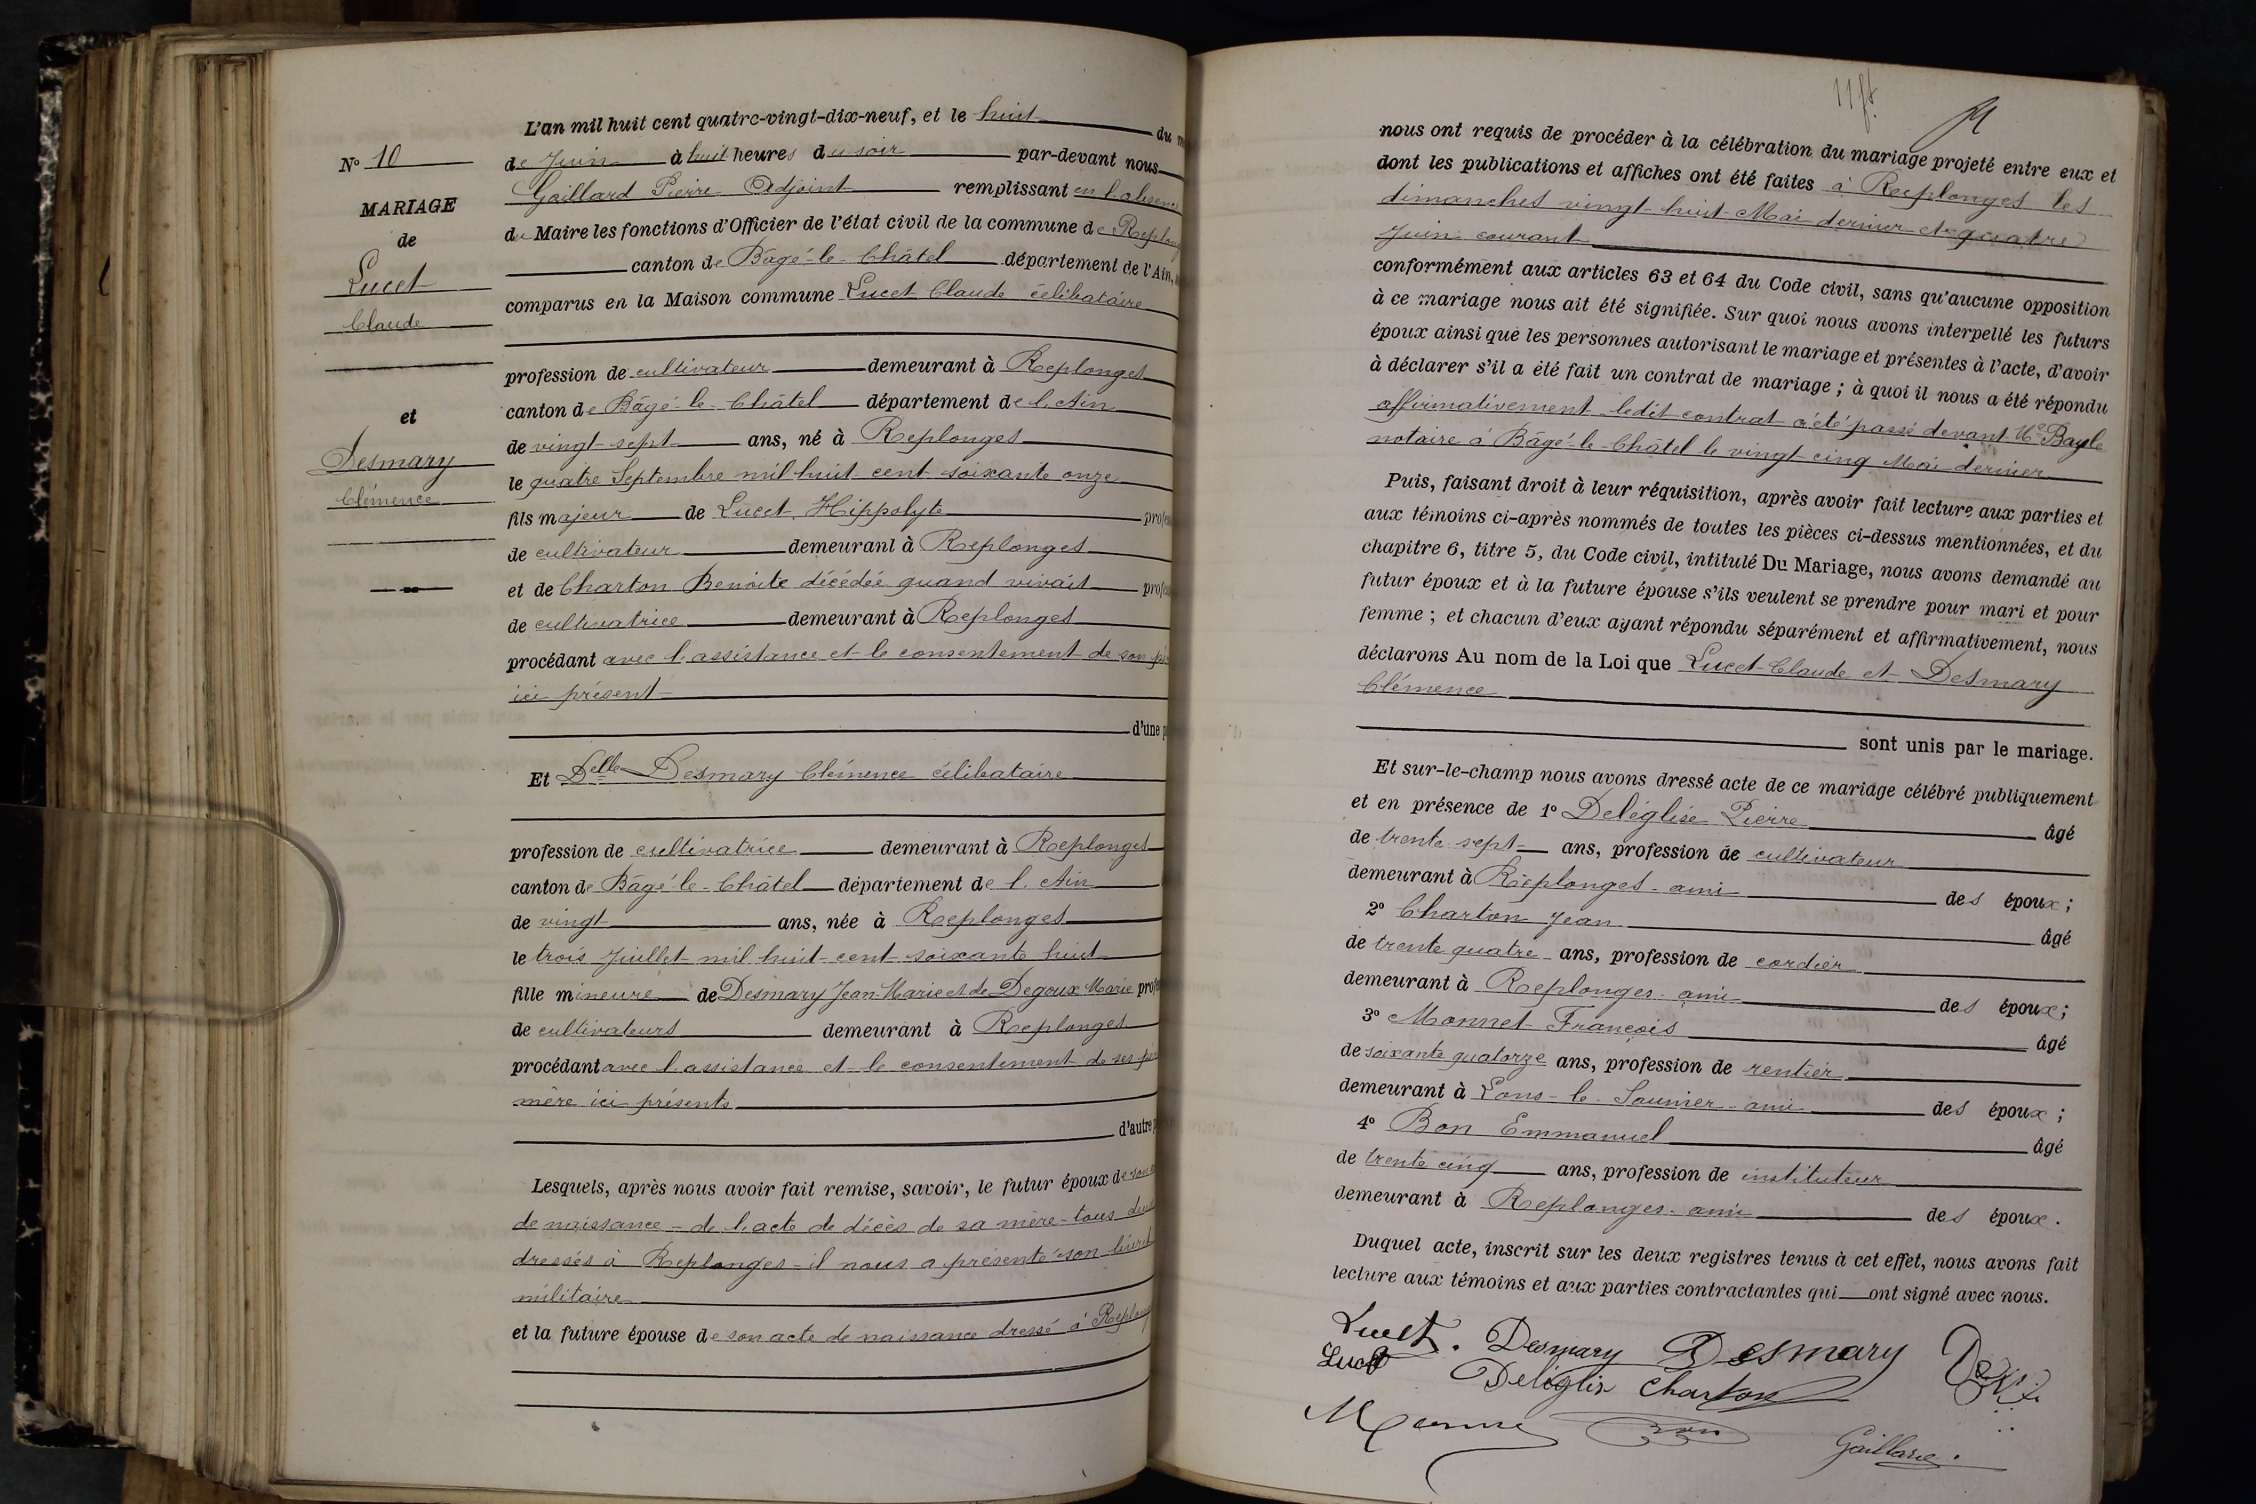 L'an mil huit cent quatre-vingt-dix-neuf, et le huit du
N° 10
de Juin à huit heures du soir par-devant nous
Gaillard Pierre Adjoint remplissant en l'absence
MARIAGE
du Maire les fonctions d'Officier de l'état civil de la commune de Replong
de
canton de Bâgé-le-Châtel département de l'Ain,
Lucet
comparus en la Maison commune Lucet Claude célibataire
Claude
profession de cultivateur demeurant à Replonges
canton de Bâgé-le-Châtel département de l'Ain
et
de vingt-sept ans, né à Replonges
Desmary
le quatre Septembre mil huit cent soixante onze
Clémence
fils majeur de Lucet Hippolyte
de cultivateur demeurant à Replonges
et de Charton Benoite décédée quand vivait
de cultivatrice demeurant à Replonges
procédant avec l'assistance et le consentement de son
ici présent
d'une
Et Delle Desmary Clémence célibataire
profession de cultivatrice demeurant à Replonges
canton de Bâgé-le-Châtel département de l'Ain
de vingt ans, née à Replonges
le trois Juillet mil huit-cent soixante huit
fille mineure de Desmary Jean-Marie et de Degoux Marie
de cultivateurs demeurant à Replonges
procédant avec l'assistance et le consentement de ses
mère ici présents
d'autre
Lesquels, après nous avoir fait remise, savoir, le futur époux de son
de naissance - de l'acte de décès de sa mère - tous deux
dressés à Replonges - il nous a présenté son livret
militaire
et la future épouse de son acte de naissance dressé à Replong
nous ont requis de procéder à la célébration du mariage projeté entre eux et
dont les publications et affiches ont été faites à Replonges les
dimanches vingt-huit Mai dernier et quatre
Juin courant
conformément aux articles 63 et 64 du Code civil, sans qu'aucune opposition
à ce mariage nous ait été signifiée. Sur quoi nous avons interpellé les futurs
époux ainsi que les personnes autorisant le mariage et présentes à l'acte, d'avoir
à déclarer s'il a été fait un contrat de mariage ; à quoi il nous a été répondu
affirmativement ledit contrat a été passé devant Me Bayle
notaire à Bâgé-le-Châtel le vingt cinq Mai dernier
Puis, faisant droit à leur réquisition, après avoir fait lecture aux parties et
aux témoins ci-après nommés de toutes les pièces ci-dessus mentionnées, et du
chapitre 6, titre 5, du Code civil, intitulé Du Mariage, nous avons demandé au
futur époux et à la future épouse s'ils veulent se prendre pour mari et pour
femme ; et chacun d'eux ayant répondu séparément et affirmativement, nous
déclarons Au nom de la Loi que Lucet Claude et Desmary
Clémence
sont unis par le mariage.
Et sur-le-champ nous avons dressé acte de ce mariage célébré publiquement
et en présence de 1° Deléglise Pierre âgé
de trente sept ans, profession de cultivateur
demeurant à Replonges - ami des époux ;
2° Charton Jean âgé
de trente quatre ans, profession de cordier
demeurant à Replonges - ami des époux ;
3° Monnet François âgé
de soixante quatorze ans, profession de rentier
demeurant à Lons-le-Saunier - ami des époux ;
4° Bon Emmanuel âgé
de trente cinq ans, profession de instituteur
demeurant à Replonges - ami des époux.
Duquel acte, inscrit sur les deux registres tenus à cet effet, nous avons fait
lecture aux témoins et aux parties contractantes qui ont signé avec nous.
Lucet. Desmary Desmary
Lucet Charton
Bon
Gaillard.